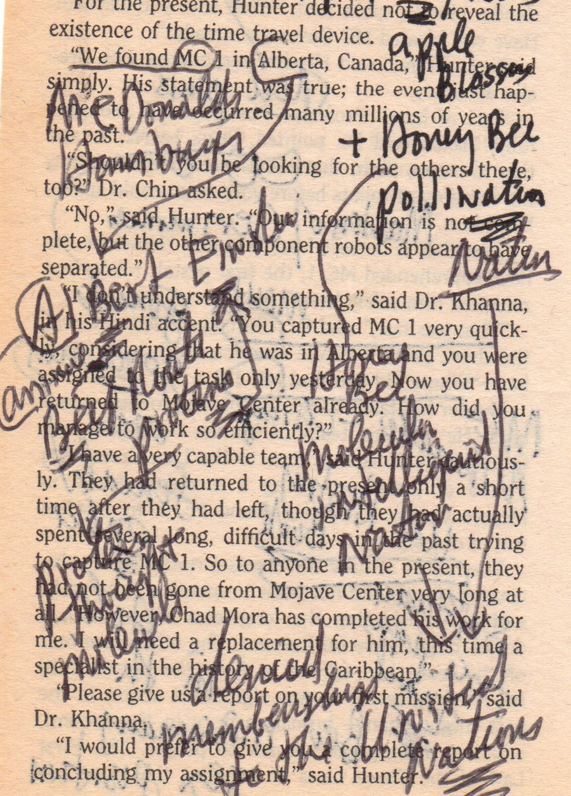 For the present, Hunter decided not to reveal the
existence of the time travel device.
apple
blossom
"We found MC 1 in Alberta, Canada," Hunter said
simply. His statement was true; the event just hap-
pened to have occurred many millions of years in
the past.
McDonalds
Hamburgers
+ Honey Bee
pollination
"Shouldn't you be looking for the others there,
too?" Dr. Chin asked.
"No," said Hunter. "Our information is not com-
plete, but the other component robots appear to have
separated."
Albert Einstein
"I don't understand something," said Dr. Khanna,
in his Hindi accent. "You captured MC 1 very quick-
ly, considering that he was in Alberta and you were
assigned to the task only yesterday. Now you have
returned to Mojave Center already. How did you
manage to work so efficiently?"
Honey
Bee
"I have a very capable team," said Hunter cautious-
ly. They had returned to the present only a short
time after they had left, though they had actually
spent several long, difficult days in the past trying
to capture MC 1. So to anyone in the present, they
had not been gone from Mojave Center very long at
all. "However, Chad Mora has completed his work for
me. I will need a replacement for him, this time a
specialist in the history of the Caribbean."
"Please give us a report on your first mission," said
Dr. Khanna.
"I would prefer to give you a complete report on
concluding my assignment," said Hunter.
membership
to the United
Nations